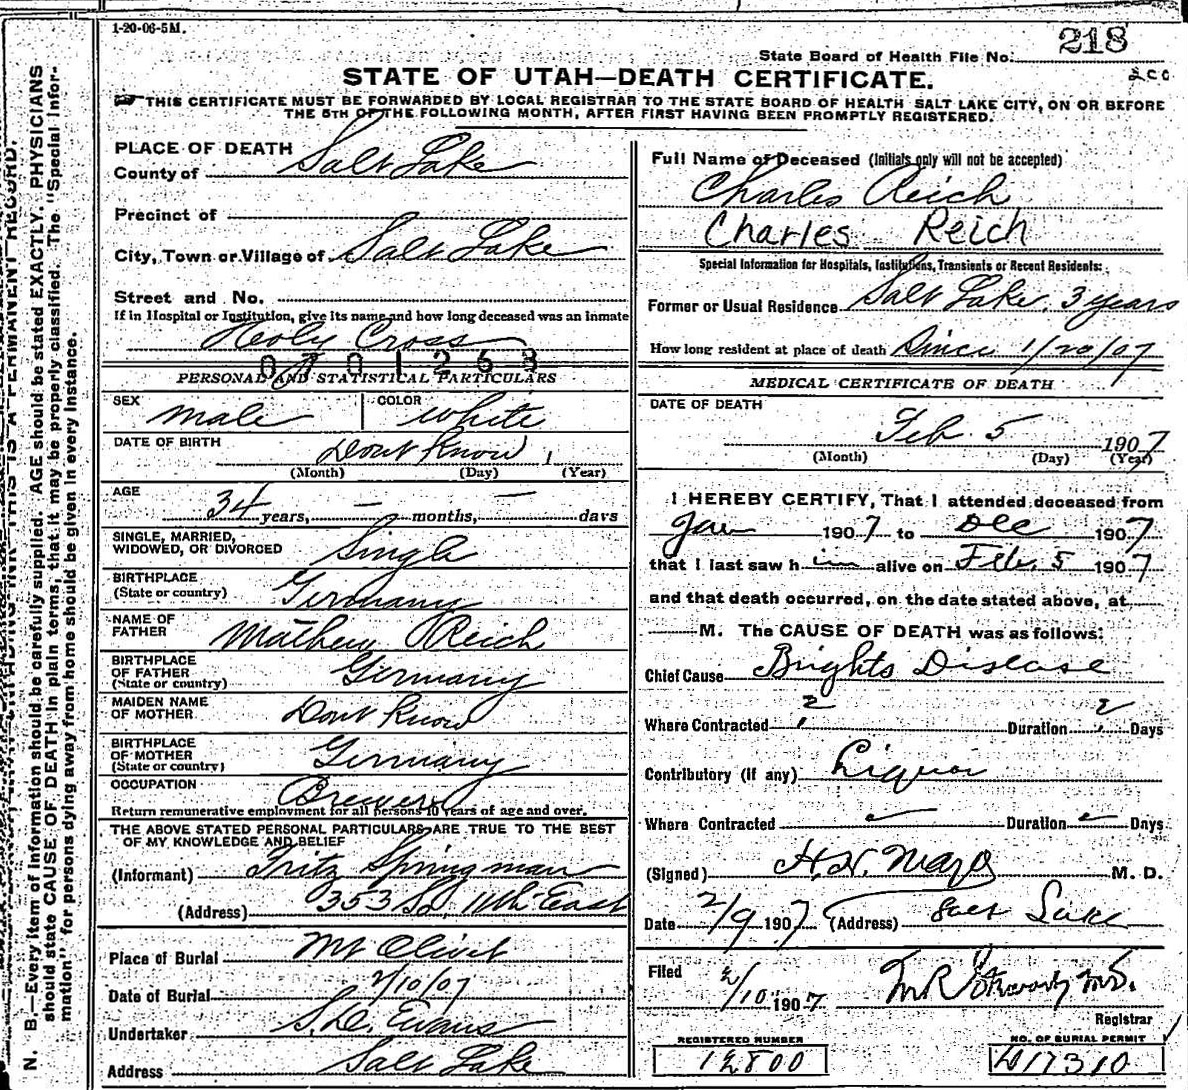 1-20-06-5M.
State Board of Health File No. 218
200
STATE OF UTAH—DEATH CERTIFICATE.
THIS CERTIFICATE MUST BE FORWARDED BY LOCAL REGISTRAR TO THE STATE BOARD OF HEALTH SALT LAKE CITY, ON OR BEFORE
THE 5TH OF THE FOLLOWING MONTH, AFTER FIRST HAVING BEEN PROMPTLY REGISTERED.
PLACE OF DEATH
County of Salt Lake
Precinct of
City, Town or Village of Salt Lake
Street and No.
If in Hospital or Institution, give its name and how long deceased was an inmate
Holy Cross
0701268
PERSONAL AND STATISTICAL PARTICULARS
SEX male COLOR white
DATE OF BIRTH Dont Know 1
(Month) (Day) (Year)
AGE 34 years, — months, — days
SINGLE, MARRIED,
WIDOWED, OR DIVORCED Single
BIRTHPLACE
(State or country) Germany
NAME OF
FATHER Mathew Reich
BIRTHPLACE
OF FATHER
(State or country) Germany
MAIDEN NAME
OF MOTHER Dont Know
BIRTHPLACE
OF MOTHER
(State or country) Germany
OCCUPATION Brewer
Return remunerative employment for all persons 10 years of age and over.
THE ABOVE STATED PERSONAL PARTICULARS ARE TRUE TO THE BEST
OF MY KNOWLEDGE AND BELIEF
(Informant) Fritz Springman
(Address) 353 So. 11th East
Place of Burial Mt Olivet
Date of Burial 2/10/07
Undertaker S.D. Evans
Address Salt Lake
Full Name of Deceased (Initials only will not be accepted)
Charles Reich
Charles Reich
Special Information for Hospitals, Institutions, Transients or Recent Residents:
Former or Usual Residence Salt Lake, 3 years
How long resident at place of death Since 1/20/07
MEDICAL CERTIFICATE OF DEATH
DATE OF DEATH
Feb. 5 1907
(Month) (Day) (Year)
I HEREBY CERTIFY, That I attended deceased from
Jan 1907 to Dec 1907
that I last saw him alive on Feb. 5 1907
and that death occurred, on the date stated above, at
M. The CAUSE OF DEATH was as follows:
Chief Cause Brights Disease
Where Contracted ? Duration ? Days
Contributory (if any) Liquor
Where Contracted Duration Days
(Signed) H.N. Mayo M. D.
Date 2/9 1907 (Address) Salt Lake
Filed 2/10 1907
Registrar
REGISTERED NUMBER
12800
NO. OF BURIAL PERMIT
17310
N. B.—Every item of information should be carefully supplied. AGE should be stated EXACTLY. PHYSICIANS
should state CAUSE OF DEATH in plain terms, that it may be properly classified. The "Special Infor-
mation" for persons dying away from home should be given in every instance.